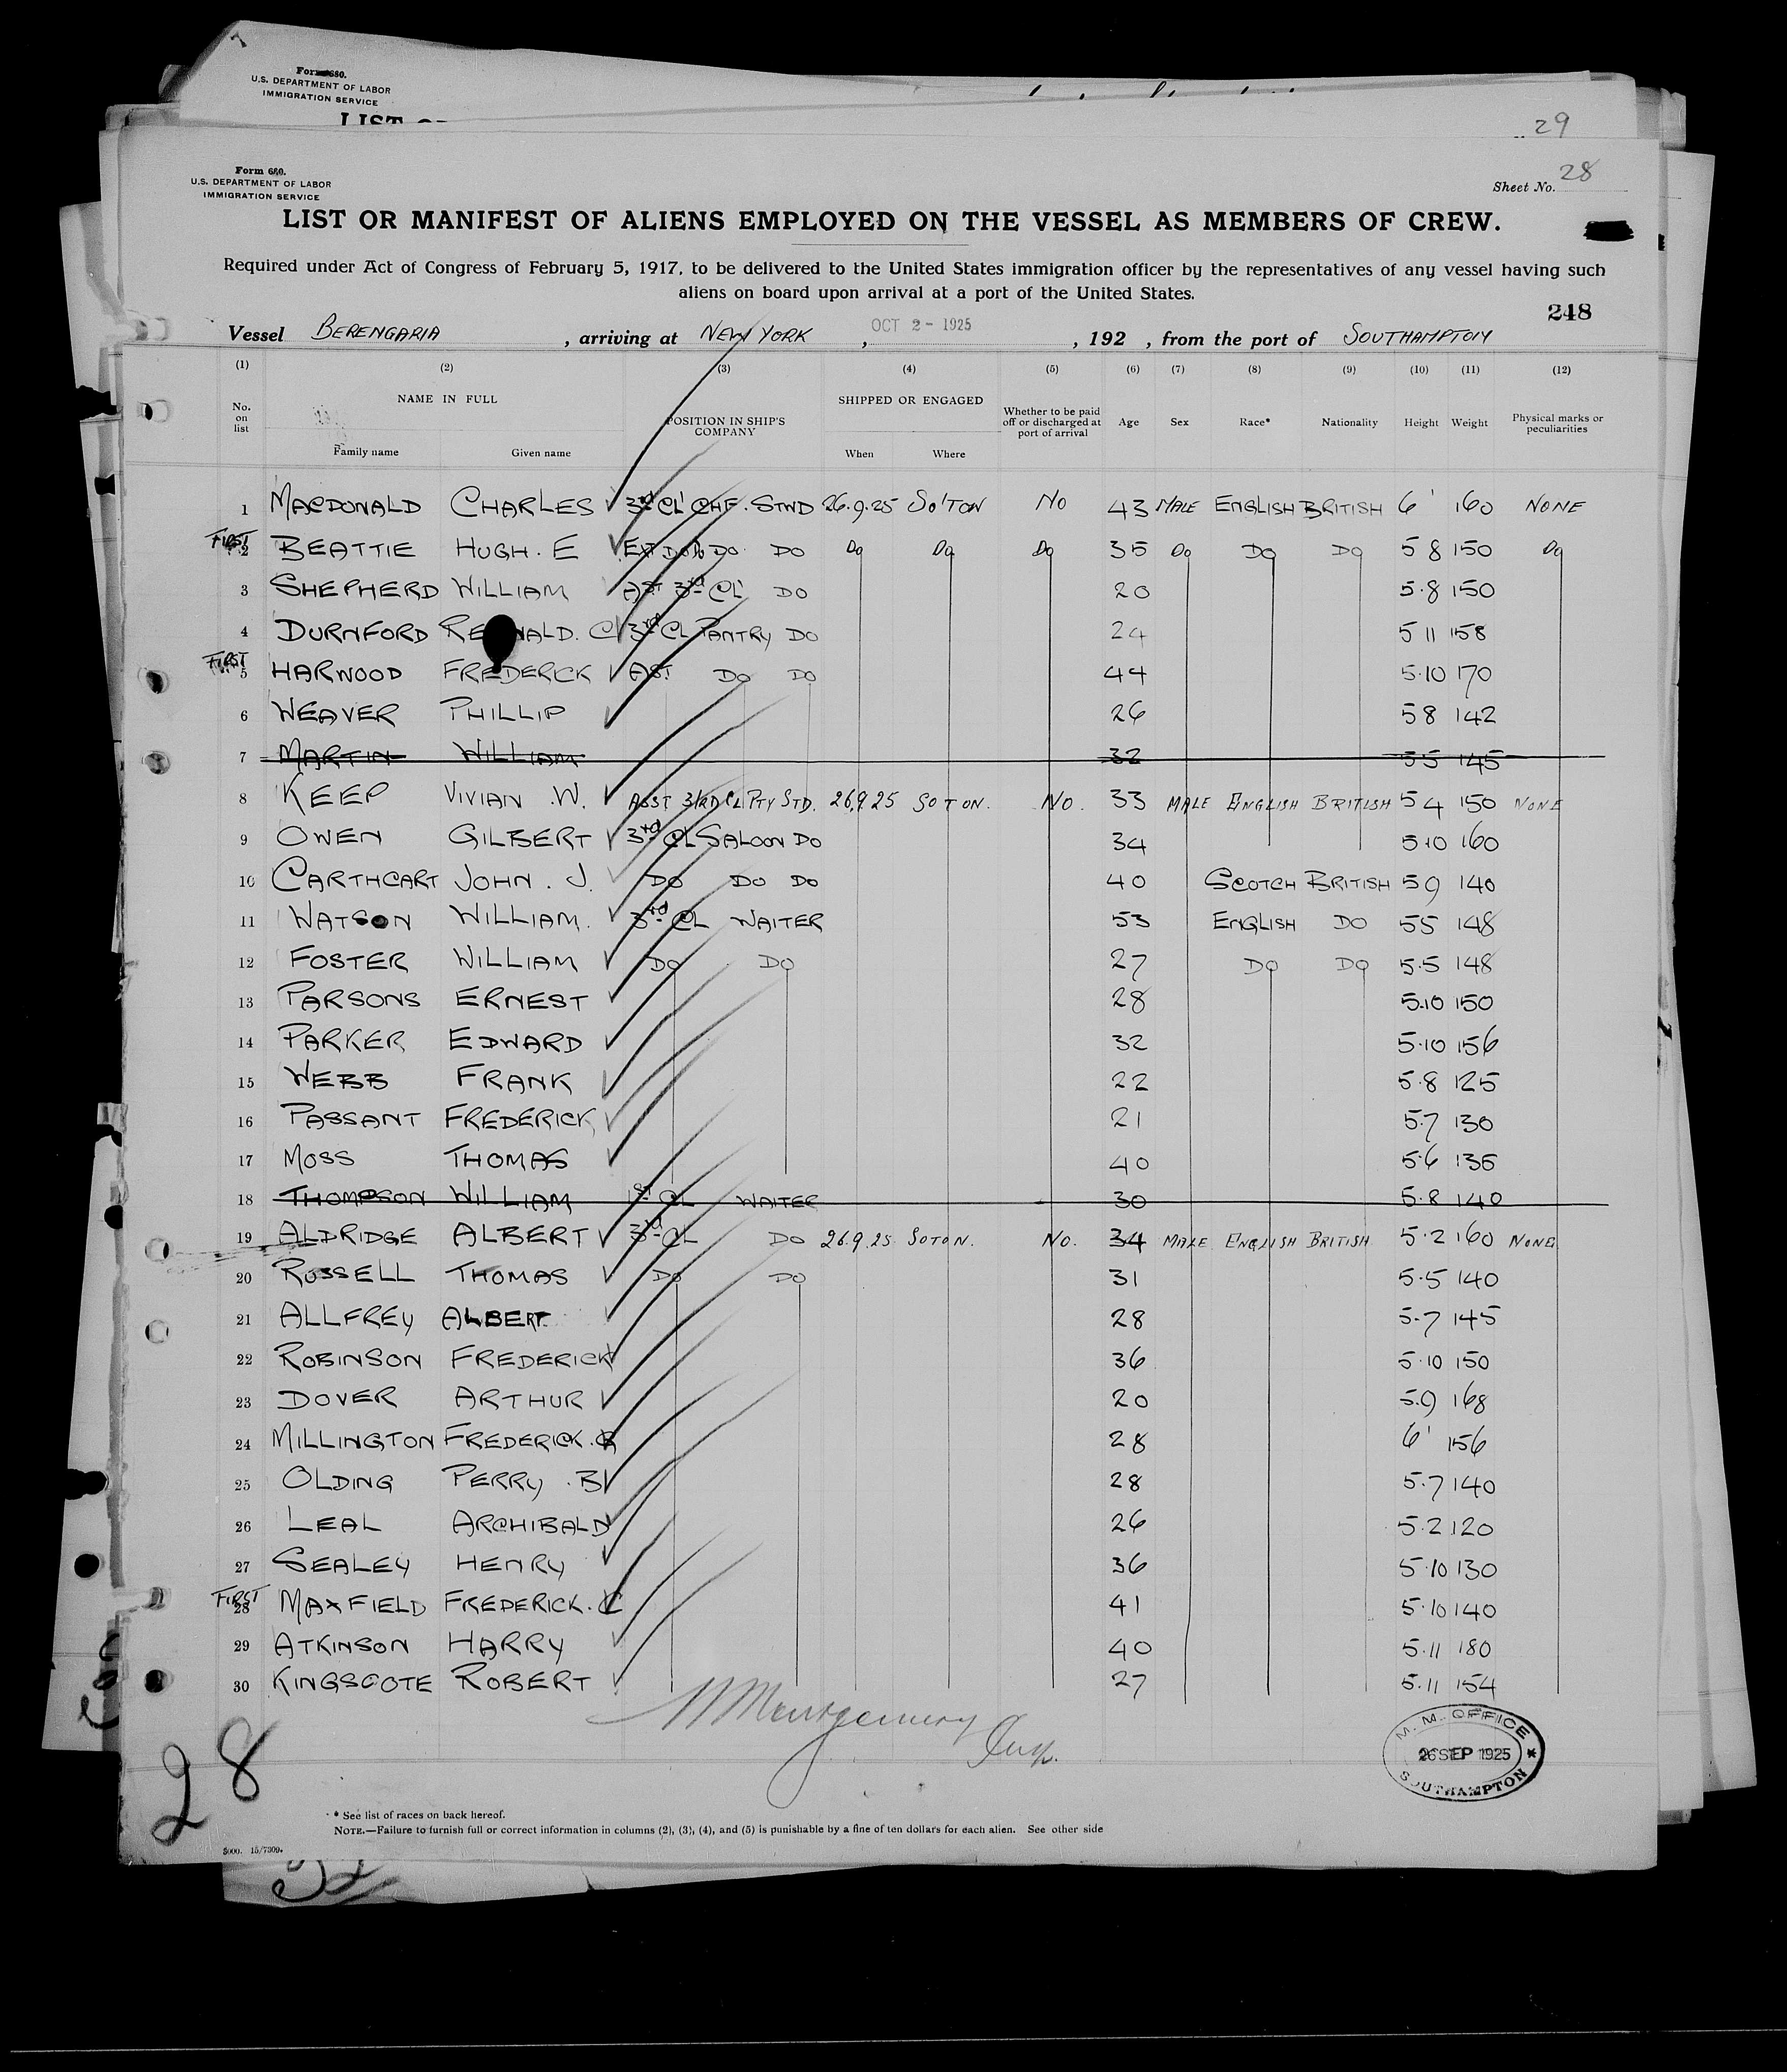 Form 680.
U.S. DEPARTMENT OF LABOR
IMMIGRATION SERVICE
29
Form 680.
U.S. DEPARTMENT OF LABOR
IMMIGRATION SERVICE
Sheet No. 28
LIST OR MANIFEST OF ALIENS EMPLOYED ON THE VESSEL AS MEMBERS OF CREW.
Required under Act of Congress of February 5, 1917, to be delivered to the United States immigration officer by the representatives of any vessel having such
aliens on board upon arrival at a port of the United States.
248
Vessel BERENGARIA , arriving at NEW YORK , OCT 2 - 1925 , 192 , from the port of SOUTHAMPTON
(1) (2) (3) (4) (5) (6) (7) (8) (9) (10) (11) (12)
No. on list NAME IN FULL Family name Given name POSITION IN SHIP'S COMPANY SHIPPED OR ENGAGED When Where Whether to be paid off or discharged at port of arrival Age Sex Race* Nationality Height Weight Physical marks or peculiarities
1 MACDONALD CHARLES 3rd CL CHF. STWD 26.9.25 SO'TON NO 43 MALE ENGLISH BRITISH 6' 160 NONE
FIRST 2 BEATTIE HUGH. E DO DO DO DO DO 35 DO DO DO 5 8 150 DO
3 SHEPHERD WILLIAM AST 3rd CL DO 20 5.8 150
4 DURNFORD 3rd CL PANTRY DO 24 5 11 158
FIRST 5 HARWOOD FREDERICK AST. DO DO 44 5.10 170
6 WEAVER PHILLIP 26 5 8 142
7 MARTIN WILLIAM 32 5 5 145
8 KEEP VIVIAN .W. ASST 3RD CL PTY STD. 26.9.25 SOTON. NO. 33 MALE ENGLISH BRITISH 5 4 150 NONE
9 OWEN GILBERT 3rd CL SALOON DO 34 5.10 160
10 CARTHCART JOHN . J. DO DO DO 40 SCOTCH BRITISH 5 9 140
11 WATSON WILLIAM. 3rd CL WAITER 53 ENGLISH DO 5 5 148
12 FOSTER WILLIAM DO DO 27 DO DO 5.5 148
13 PARSONS ERNEST 28 5.10 150
14 PARKER EDWARD 32 5.10 156
15 WEBB FRANK 22 5.8 125
16 PASSANT FREDERICK 21 5.7 130
17 MOSS THOMAS 40 5.6 135
18 THOMPSON WILLIAM 1st CL WAITER 30 5.8 140
19 ALDRIDGE ALBERT 3rd CL DO 26.9.25 SOTON. NO. 34 MALE ENGLISH BRITISH 5.2 160 NONE
20 RUSSELL THOMAS DO DO 31 5.5 140
21 ALLFREY ALBERT 28 5.7 145
22 ROBINSON FREDERICK 36 5.10 150
23 DOVER ARTHUR 20 5.9 168
24 MILLINGTON FREDERICK. 28 6' 156
25 OLDING PERRY .B 28 5.7 140
26 LEAL ARCHIBALD 26 5.2 120
27 SEALEY HENRY 36 5.10 130
FIRST 28 MAXFIELD FREDERICK.C 41 5.10 140
29 ATKINSON HARRY 40 5.11 180
30 KINGSCOTE ROBERT 27 5.11 154
Montgomery
Insp.
M. M. OFFICE
26 SEP 1925
SOUTHAMPTON
28
* See list of races on back hereof.
NOTE.—Failure to furnish full or correct information in columns (2), (3), (4), and (5) is punishable by a fine of ten dollars for each alien. See other side
5000. 15/7309.